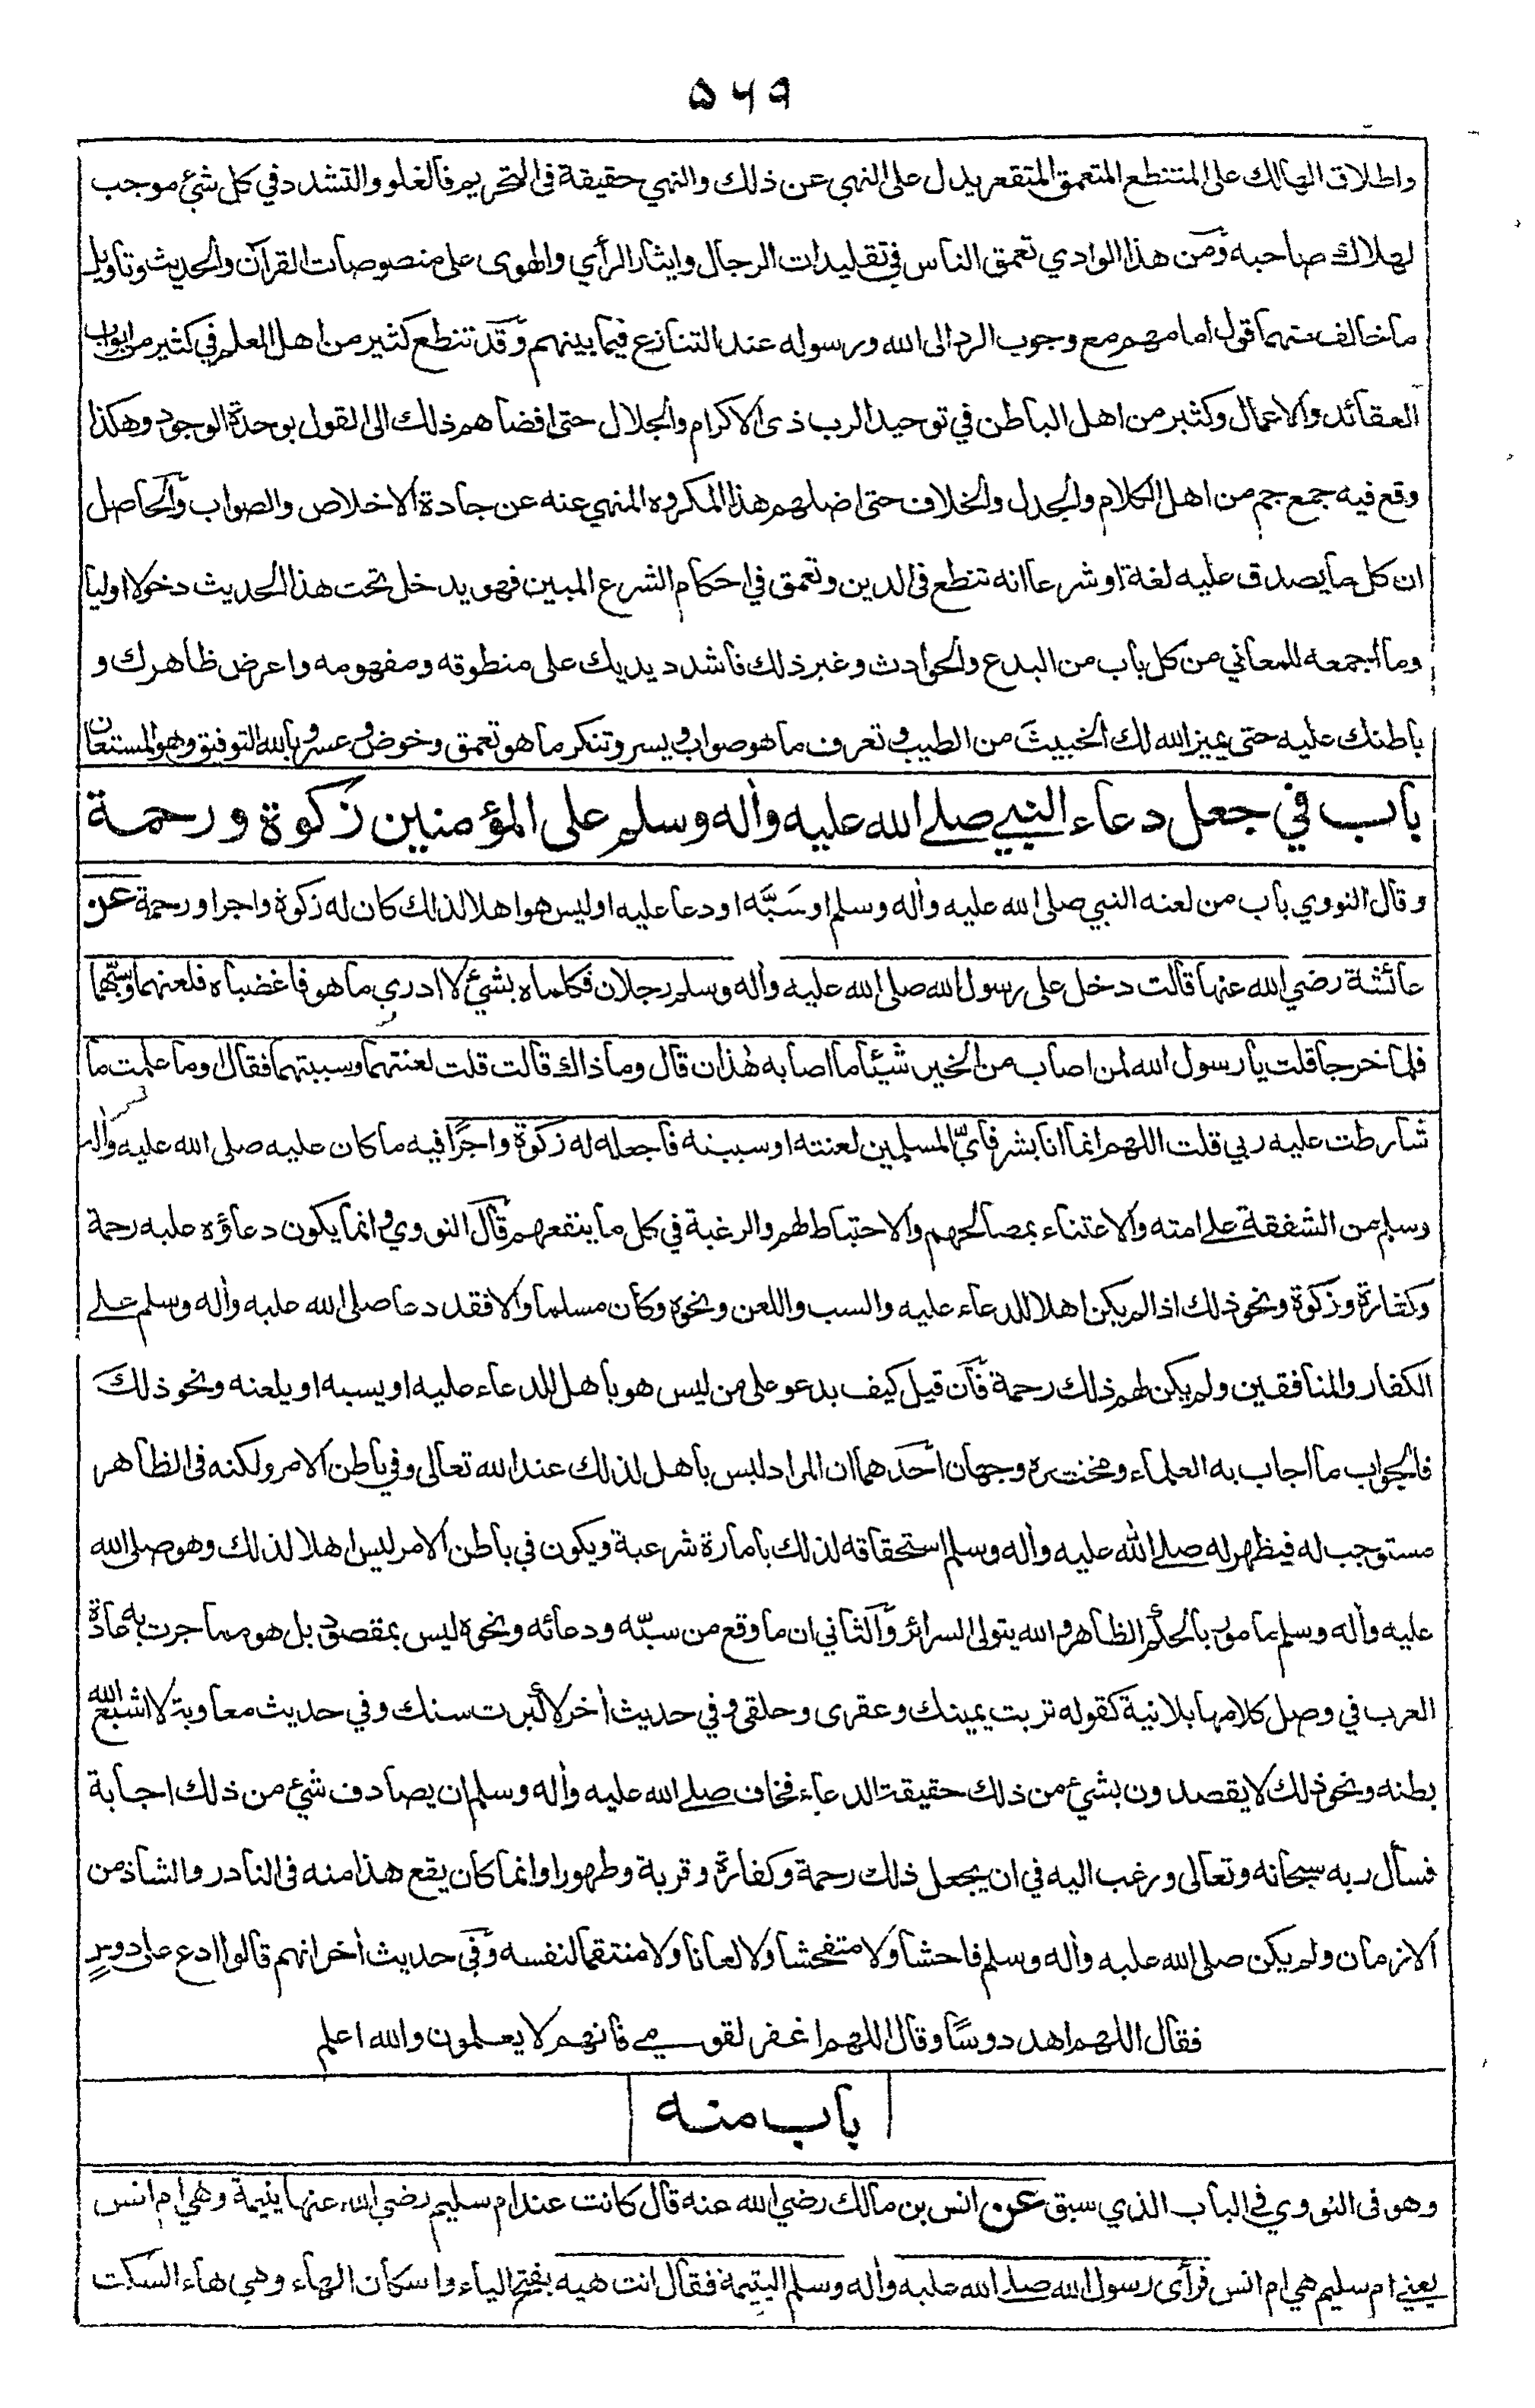 ۵۶۹
واطلاق الهالك على المتنطع المتعمق المتقعر يدل على النهي عن ذلك والنهي حقيقة فى التحريم فالغلو والتشدد في كل شئ موجب
لهلاك صاحبه ومن هذا الوادي تعمق الناس في تقليدات الرجال وايثار الرأي والهوى على منصوصات القرآن والحديث وتاويل
ما خالف منهما قول امامهم مع وجوب الرد الى الله ورسوله عند التنازع فيما بينهم وقد تنطع كثير من اهل العلم في كثير من ابواب
العقائد والاعمال وكثير من اهل الباطن في توحيد الرب ذى الاكرام والجلال حتى افضاهم ذلك الى القول بوحدة الوجود وهكذا
وقع فيه جمع جم من اهل الكلام والجدل والخلاف حتى اضلهم هذا المكروه المنهي عنه عن جادة الاخلاص والصواب والحاصل
ان كل ما يصدق عليه لغة او شرعا انه تنطع فى الدين وتعمق في احكام الشرع المبين فهو يدخل تحت هذا الحديث دخولا اوليا
وما اجمعه للمعاني من كل باب من البدع والحوادث وغير ذلك فاشدد يديك على منطوقه ومفهومه واعرض ظاهرك و
باطنك عليه حتى يميز الله لك الخبيثَ من الطيب وتعرف ما هو صواب ويسر وتنكر ما هو تعمق وخوض وعسر وبالله التوفيق وهو المستعان
باب في جعل دعاء النبي صلے الله عليه وأله وسلم على المؤمنين زكوة ورحمة
وقال النووي باب من لعنه النبي صلى الله عليه وأله وسلم او سَبَّه او دعا عليه وليس هو اهلا لذلك كان له زكوة واجرا ورحمة عن
عائشة رضي الله عنها قالت دخل على رسول الله صلى الله عليه وأله وسلم رجلان فكلماه بشئ لا ادري ما هو فاغضباه فلعنهما وسبّهما
فلما خرجا قلت يا رسول الله لمن اصاب من الخير شيئا ما اصابه هٰذان قال وما ذاك قالت قلت لعنتهما وسببتهما فقال اوما علمت ما
شارطت عليه ربي قلت اللهم انما انا بشر فايّ المسلمين لعنته او سببته فاجعله له زكوة واجرًا فيه ما كان عليه صلى الله عليه وأله
وسلم من الشفقة علے امته والاعتناء بمصالحهم والاحتياط لهم والرغبة في كل ما ينفعهم قال النووي وانما يكون دعاؤه عليه رحمة
وكفارة وزكوة ونحو ذلك اذا لم يكن اهلا للدعاء عليه والسب واللعن ونحوه وكان مسلما والا فقد دعا صلى الله عليه وأله وسلم علے
الكفار والمنافقين ولم يكن لهم ذلك رحمة فان قيل كيف يدعو على من ليس هو باهل للدعاء عليه او يسبه او يلعنه ونحو ذلك
فالجواب ما اجاب به العلماء ومختصره وجهان احدهما ان المراد ليس باهل لذلك عند الله تعالى وفي باطن الامر ولكنه فى الظاهر
مستوجب له فيظهر له صلے الله عليه وأله وسلم استحقاقه لذلك بامارة شرعية ويكون في باطن الامر ليس اهلا لذلك وهو صلى الله
عليه وأله وسلم مامور بالحكم الظاهر والله يتولى السرائر والثاني ان ما وقع من سبّه ودعائه ونحوه ليس بمقصود بل هو مما جرت به عادة
العرب في وصل كلامها بلا نية كقوله تربت يمينك وعقرى وحلقى وفي حديث أخر لا كبرت سنك وفي حديث معاوية لا اشبع الله
بطنه ونحو ذلك لا يقصدون بشئ من ذلك حقيقة الدعاء فخاف صلے الله عليه وأله وسلم ان يصادف شئ من ذلك اجابة
فسأل ربه سبحانه وتعالى ورغب اليه في ان يجعل ذلك رحمة وكفارة وقربة وطهورا وانما كان يقع هذا منه فى النادر والشاذ من
الازمان ولم يكن صلى الله عليه وأله وسلم فاحشا ولا متفحشا ولا لعانا ولا منتقما لنفسه وفي حديث أخر انهم قالوا ادع على دوس
فقال اللهم اهد دوسًا وقال اللهم اغفر لقومے فانهم لا يعلمون والله اعلم
باب منه
وهو فى النووي في الباب الذي سبق عن انس بن مالك رضي الله عنه قال كانت عند ام سليم رضي الله عنها يتيمة وهي ام انس
يعنے ام سليم هي ام انس فرأى رسول الله صلے الله عليه وأله وسلم اليتيمة فقال انت هيه بفتح الياء واسكان الهاء وهي هاء السكت